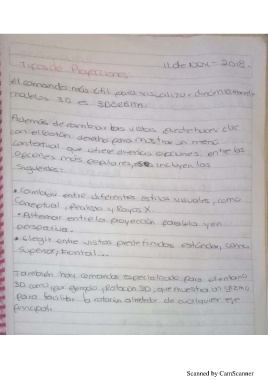 11 de Nov - 2018.
Tipos de Proyecciones
El comando más útil para visualizar dinámicamente
modelos 3D es 3DORBITA.
Además de cambiar las vistas puede hacer clic
con el botón derecho para mostrar un menú
contextual que ofrece diversas opciones, entre las
opciones más populares, se incluyen las
siguientes:
• Cambiar entre diferentes estilos visuales, como
Conceptual, Realista y Rayos X
• Alternar entre la proyección paralela y en
perspectiva.
• Elegir entre vistas predefinidas estándar, como
Superior, Frontal...
También hay comandos especializado para
3D como por ejemplo, Rotación 3D, que muestra un gizmo
para facilitar la rotación alrededor de cualquier eje
principal.
Scanned by CamScanner